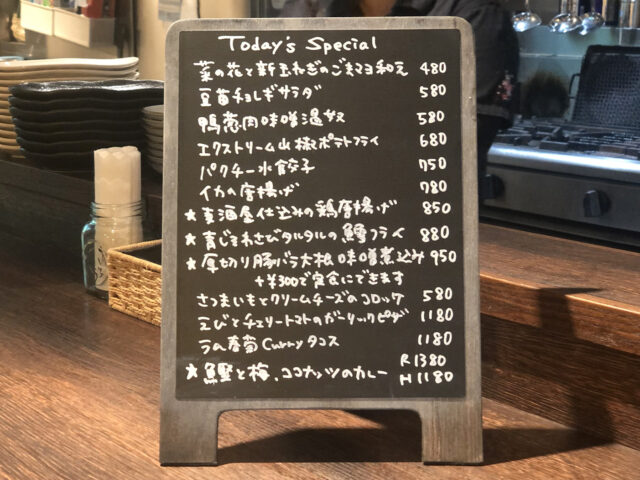 Today's Special
菜の花と新玉ねぎのごまマヨ和え 480
豆苗チョレギサラダ 580
鴨葱肉味噌温奴 580
エクストリーム山椒ポテトフライ 680
パクチー水餃子 750
イカの唐揚げ 780
★ 居酒屋仕込みの鶏唐揚げ 850
★ 青じそわさびタルタルの鱈フライ 880
★ 厚切り豚バラ大根味噌煮込み 950
+¥300で定食にできます
さつまいもとクリームチーズのコロッケ 580
えびとチェリートマトのガーリックピザ 1180
ラム春菊Curryタコス 1180
★ 鰹と梅、ココナッツのカレー R1380
H1180